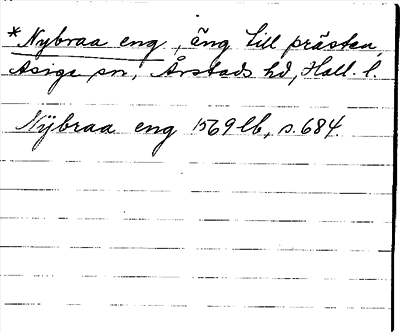 * Nybraa eng, äng till prästen
Asige sn, Årstads hd, Hall. l.
Nÿbraa eng 1569 lb, s. 684.